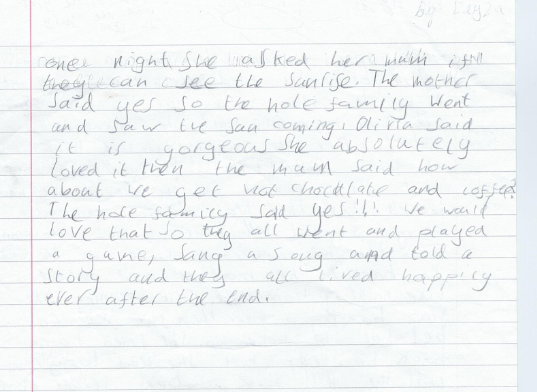 by
one night she asked her mum if
they can see the sunrise. The mother
said yes so the hole family went
and saw the sun coming, Olivia said
it is gorgeous she absolutely
loved it then the mum said how
about we get hot chocolate and coffee?
The hole family said yes!!! we would
love that so they all went and played
a game, sang a song and told a
story and they all lived happily
ever after the end.